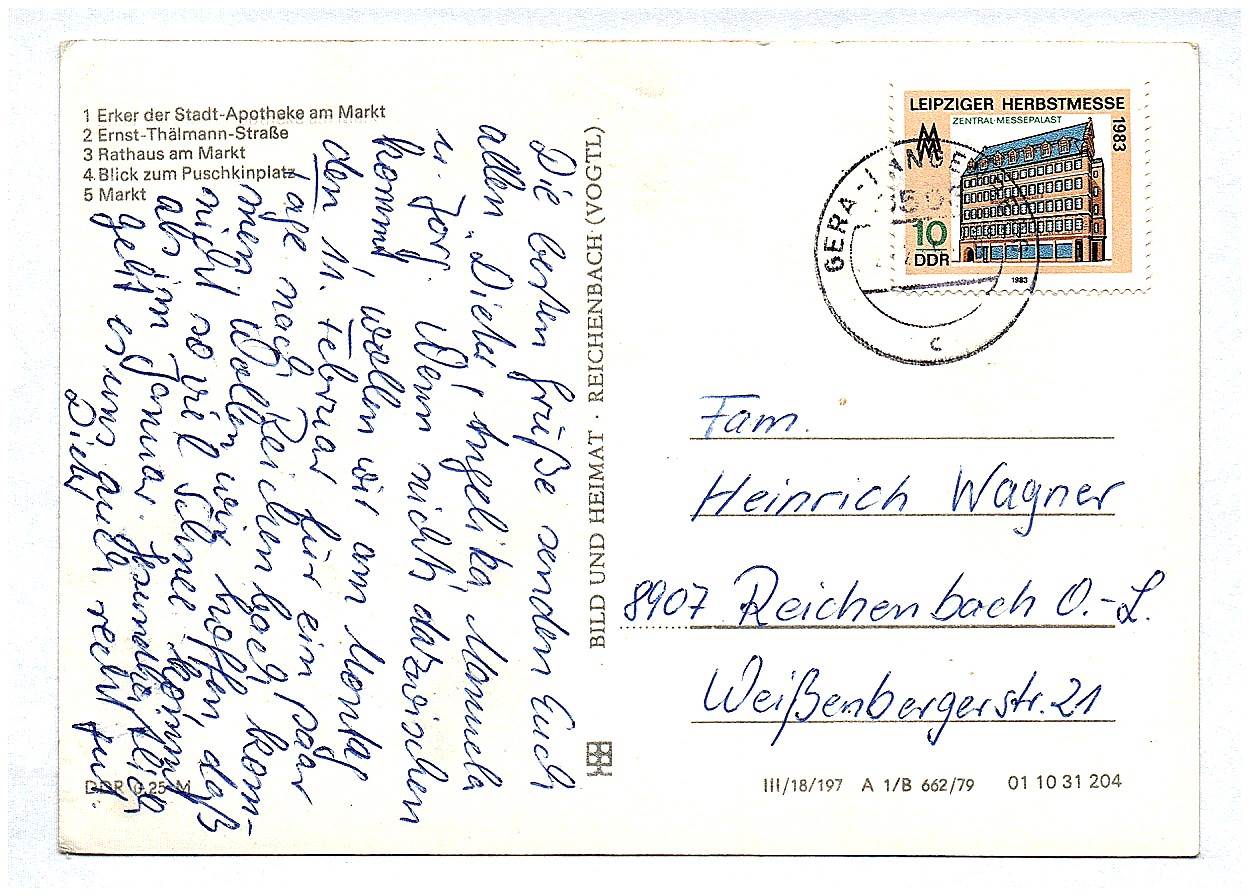 1 Erker der Stadt-Apotheke am Markt
2 Ernst-Thälmann-Straße
3 Rathaus am Markt
4 Blick zum Puschkinplatz
5 Markt
Die besten Grüße senden Euch
allen, Dieter, Angelika, Manuela
u. Jörg. Wenn nichts dazwischen
kommt, wollen wir am Montag
den 11. Februar für ein paar
Tage nach Reichenbach kom-
men. Wollen wir hoffen, daß
nicht so viel Schnee kommt
als im Januar. Gesundheitlich
geht es uns auch recht gut.
Dieter
DDR 0,25 M
BILD UND HEIMAT · REICHENBACH (VOGTL)
LEIPZIGER HERBSTMESSE
1983
ZENTRAL-MESSEPALAST
MM
10
DDR
1983
GERA-LANGE
C
Fam.
Heinrich Wagner
8907 Reichenbach O.-L.
Weißenbergerstr. 21
III/18/197 A 1/B 662/79 01 10 31 204